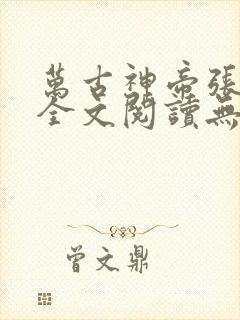 萬古神帝張
全文閱讀無
曾文鼎